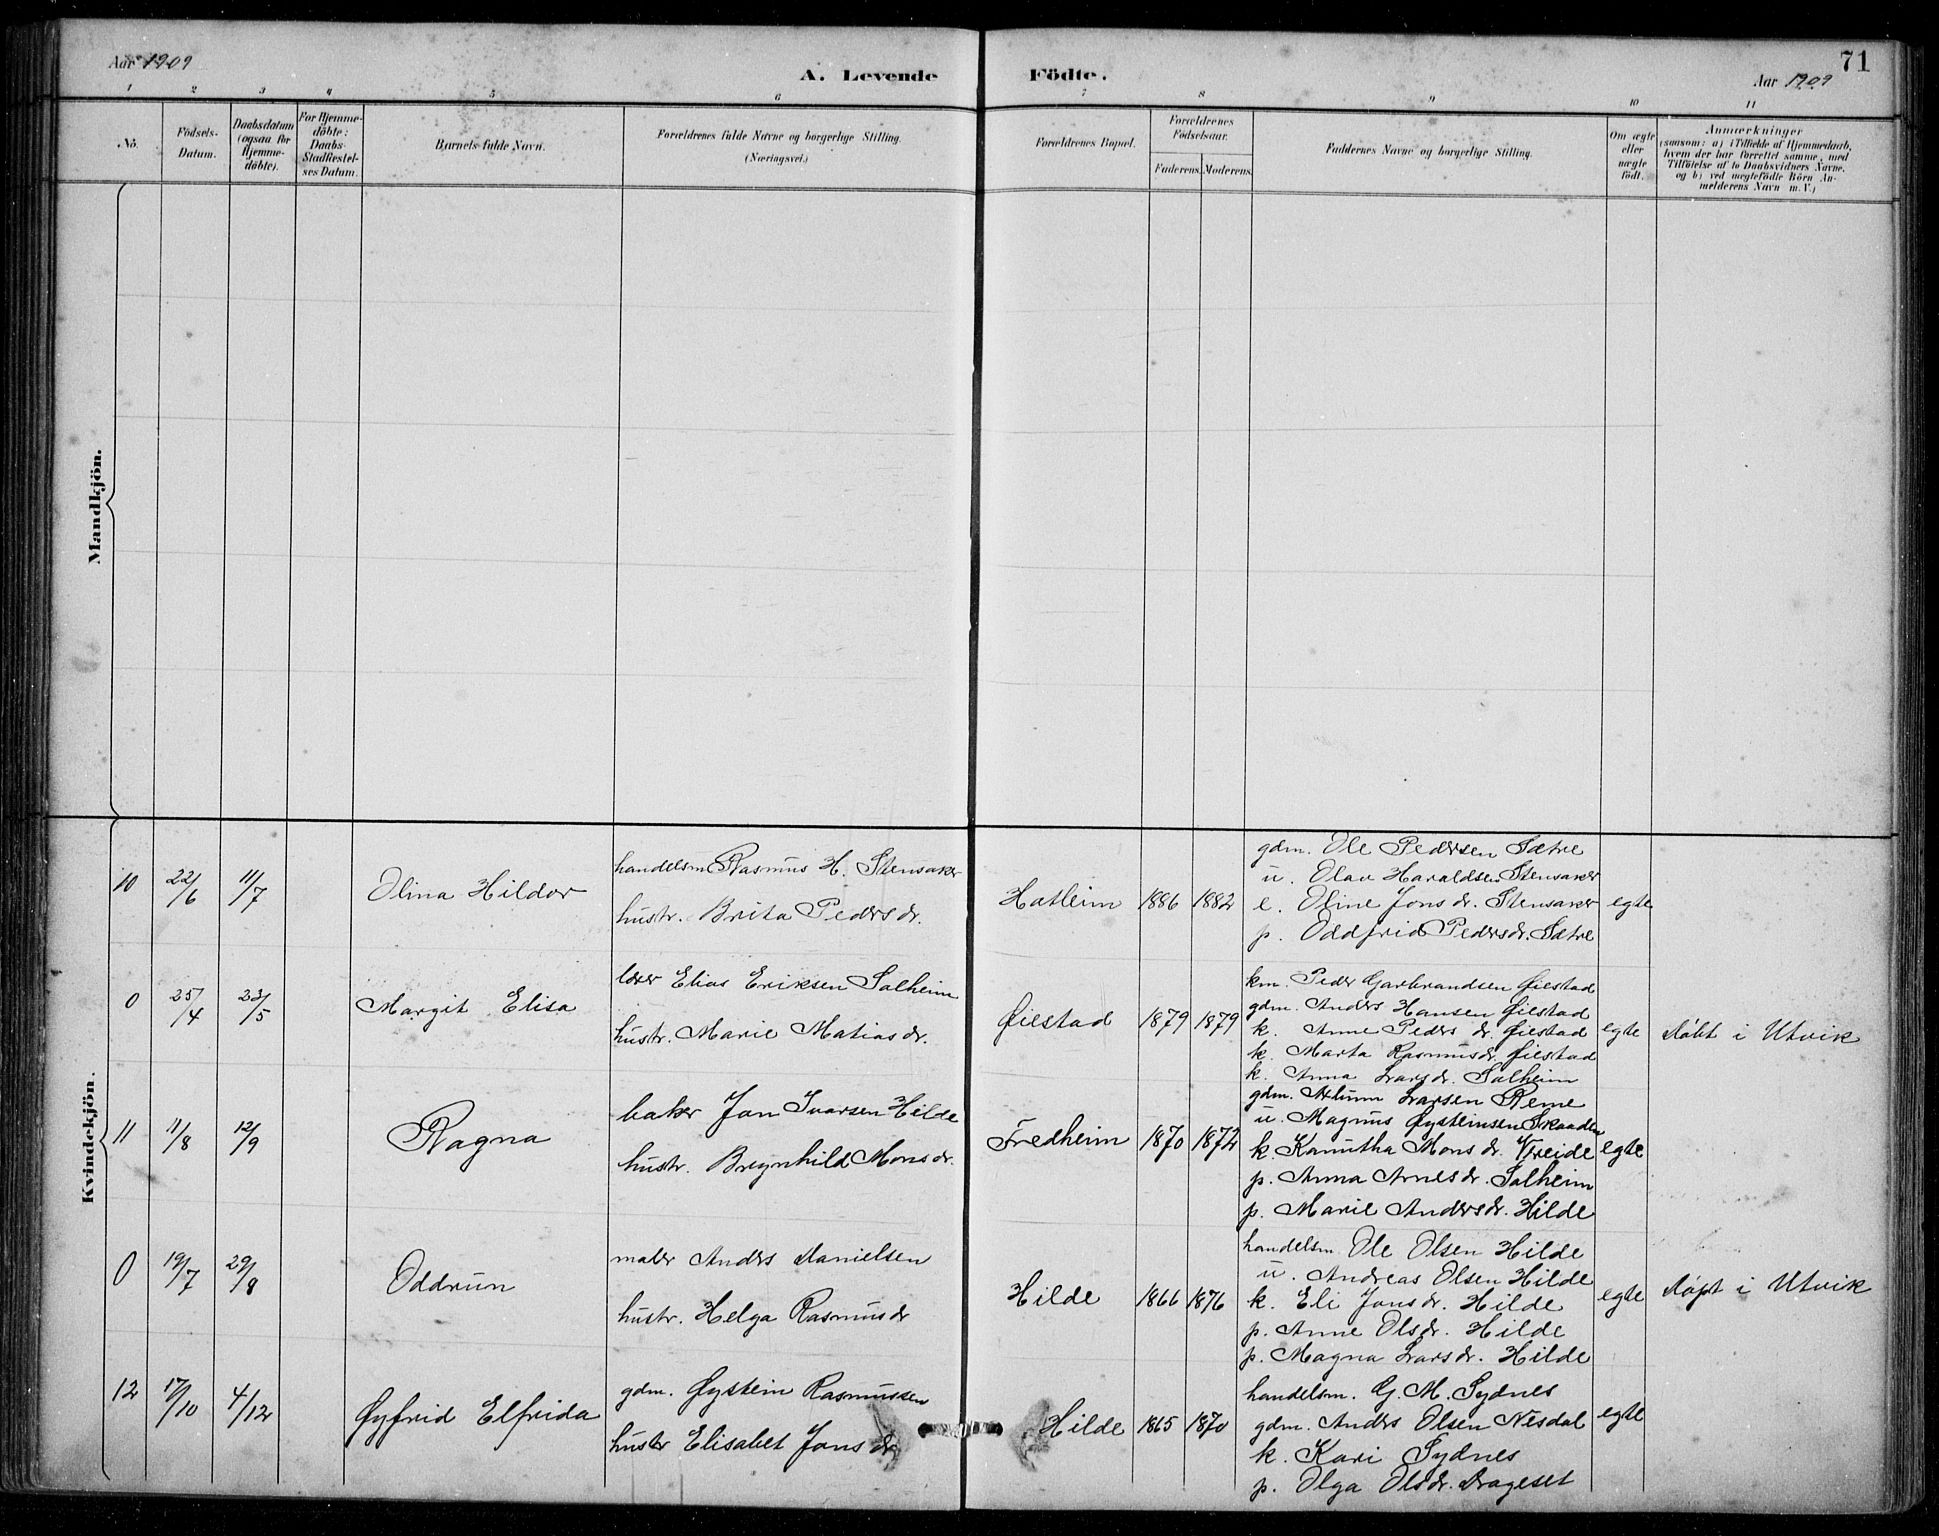 Aar 1909
A. Levende Födte.
Aar 1909
71
1 2 3 4 5 6 7 8 9 10 11
No.
Födsels-
Datum.
Daabsdatum
(ogsaa for
Hjemme-
döbte).
For Hjemme-
döbte:
Daabs-
Stadfæstel-
ses Datum.
Barnets fulde Navn.
Forældrenes fulde Navne og borgerlige Stilling.
(Næringsvei.)
Forældrenes Bopæl.
Forældrenes
Födselsaar.
Faderens. Moderens.
Faddernes Navne og borgerlige Stilling.
Om ægte
eller
uægte
födt.
Anmærkninger
(saasom: a) i Tilfælde af Hjemmedaab,
hvem der har forrettet samme, med
Tilföielse af to Daabsvidners Navne,
og b) ved uægtefödte Börn An-
melderens Navn m. V.)
Mandkjön.
Kvindekjön.
10 22/6 11/7 Olina Hildor
handelsm Rasmus H. Stensaker
hustr. Brita Pedersdr.
Hatleim 1886 1882
gdm. Ole Pedersen Sætre
u. Olav Haraldsen Stensaker
e. Oline Jonsdr. Stensaker
p. Oddfrid Pedersdr. Sætre
egte
0 25/4 23/5 Margit Elisa
lærer Elias Eriksen Solheim
hustr. Marie Matiasdr.
Øiestad 1879 1879
km. Peder Garbrandsen Øiestad
gdm. Anders Hansen Øiestad
k. Anne Pedersdr. Øiestad
k. Marta Rasmusdr. Øiestad
k. Anna Larsdr. Solheim
egte
Døbt i Utvik
11 11/8 12/9 Ragna
baker Jon Ivarsen Hilde
hustr. Brynhild Monsdr.
Fredheim 1870 1872
gdm. Larsen Reme
u. Magnus Øysteinsen Skaaden
k. Kanutha Monsdr. Vreide
p. Anna Arnesdr. Solheim
p. Marie Andersdr. Hilde
egte
0 19/7 29/8 Oddrun
maler Anders Danielsen
hustr. Helga Rasmusdr
Hilde 1866 1876
handelsm. Ole Olsen Hilde
u. Andreas Olsen Hilde
k. Eli Jonsdr. Hilde
p. Anne Olsdr. Hilde
p. Magna Larsdr. Hilde
egte
Døpt i Utvik
12 17/10 4/12 Øyfrid Elfrida
gdm. Øystein Rasmussen
hustr Elisabet Jonsdr
Hilde 1865 1870
handelsm. G. M. Sydnes
gdm. Anders Olsen Nesdal
k. Kari Sydnes
p. Olga Olsdr. Drageset
egte